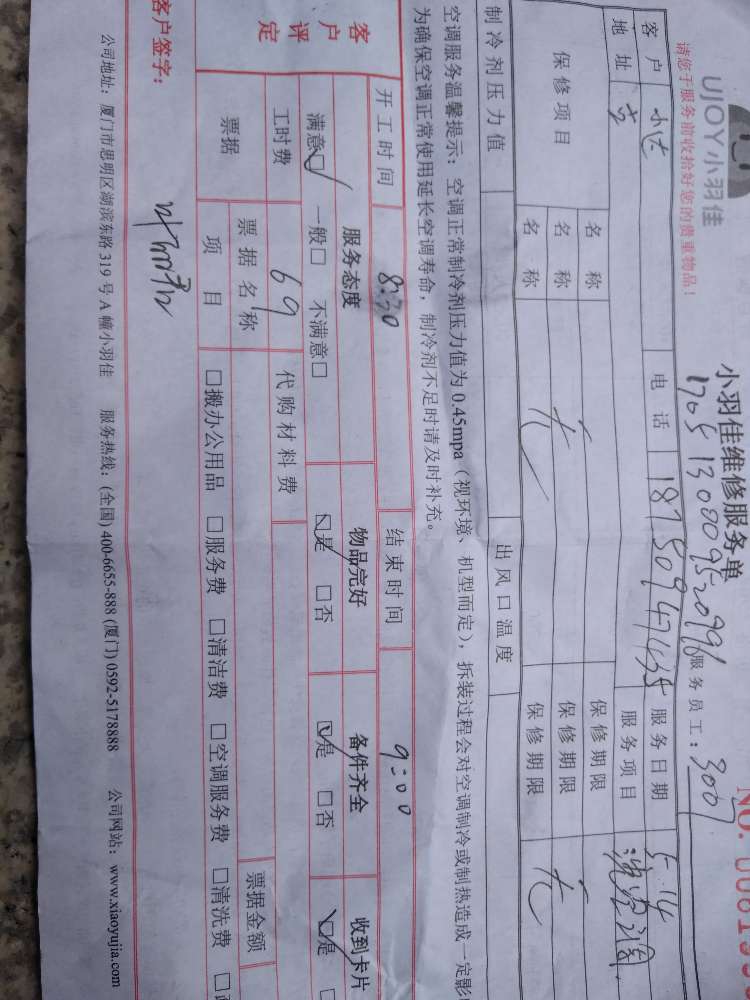 UJOY小羽佳
小羽佳维修服务单
NO. 00619
请您于服务前收拾好您的贵重物品！
服务员工：3007
客户 电话 服务日期 5.14
地址 服务项目
保修项目 名称 保修期限
名称 无 保修期限 无
名称 保修期限
制冷剂压力值 出风口温度
空调服务温馨提示：空调正常制冷剂压力值为 0.45mpa（视环境、机型而定），拆装过程会对空调制冷或制热造成一定影
为确保空调正常使用延长空调寿命，制冷剂不足时请及时补充。
开工时间 8:30 结束时间 9:00
客户评定 服务态度 物品完好 备件齐全 收到卡片
满意☑ 一般□ 不满意□ ☑是 □否 ☑是 □否 ☑是
工时费 69 代购材料费
票据 票据名称 票据金额
项目 □搬办公用品 □服务费 □清洁费 □空调服务费 □清洗费
客户签字：
公司地址：厦门市思明区湖滨东路 319 号 A 幢小羽佳 服务热线：(全国) 400-6655-888 (厦门) 0592-5178888 公司网站：www.xiaoyujia.com